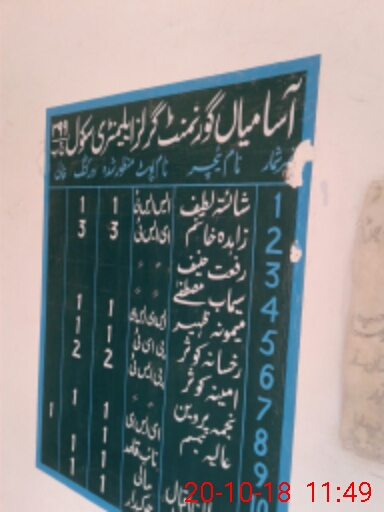 آسامیاں گورنمنٹ گرلز ایلیمنٹری سکول
نمبر شمار نام ٹیچر نام پوسٹ منظور شدہ ورکنگ خالی
1 شائستہ لطیف ایس ایس ٹی 1 1
2 زاہدہ خانم ای ایس ٹی 3 3
3 رفعت حنیف " "
4 سیماب مصطفےٰ " "
5 میمونہ ظہیر ایس وی 1 1
6 رخسانہ کوثر پی ای ٹی 1 1
7 امینہ کوثر پی ایس ٹی 2 2
8 نجمہ پروین " "
9 عالیہ تبسم ای ایس ای 1 1
نائب قاصد 1 1
مالی 1 1
چوکیدار 1
20-10-18 11:49